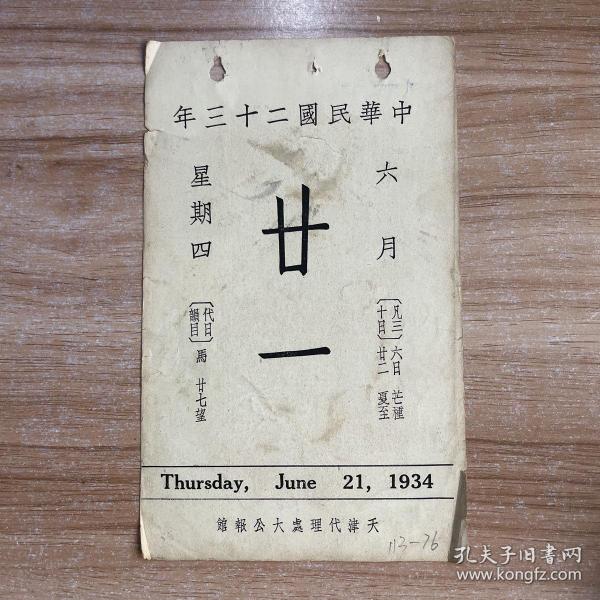 中華民國二十三年
六月
廿一
星期四
〔凡三十日〕
六日 芒種
廿二 夏至
〔代日韻目〕馬 廿七望
Thursday, June 21, 1934
天津代理處大公報館
113-76
孔夫子旧书网
www.kongfz.com